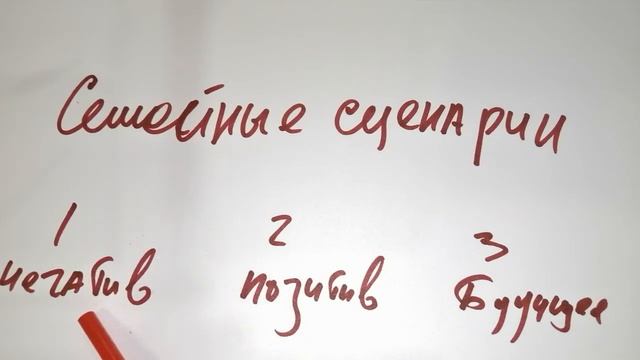 Семейные сценарии
1 2 3
негатив позитив Будущее